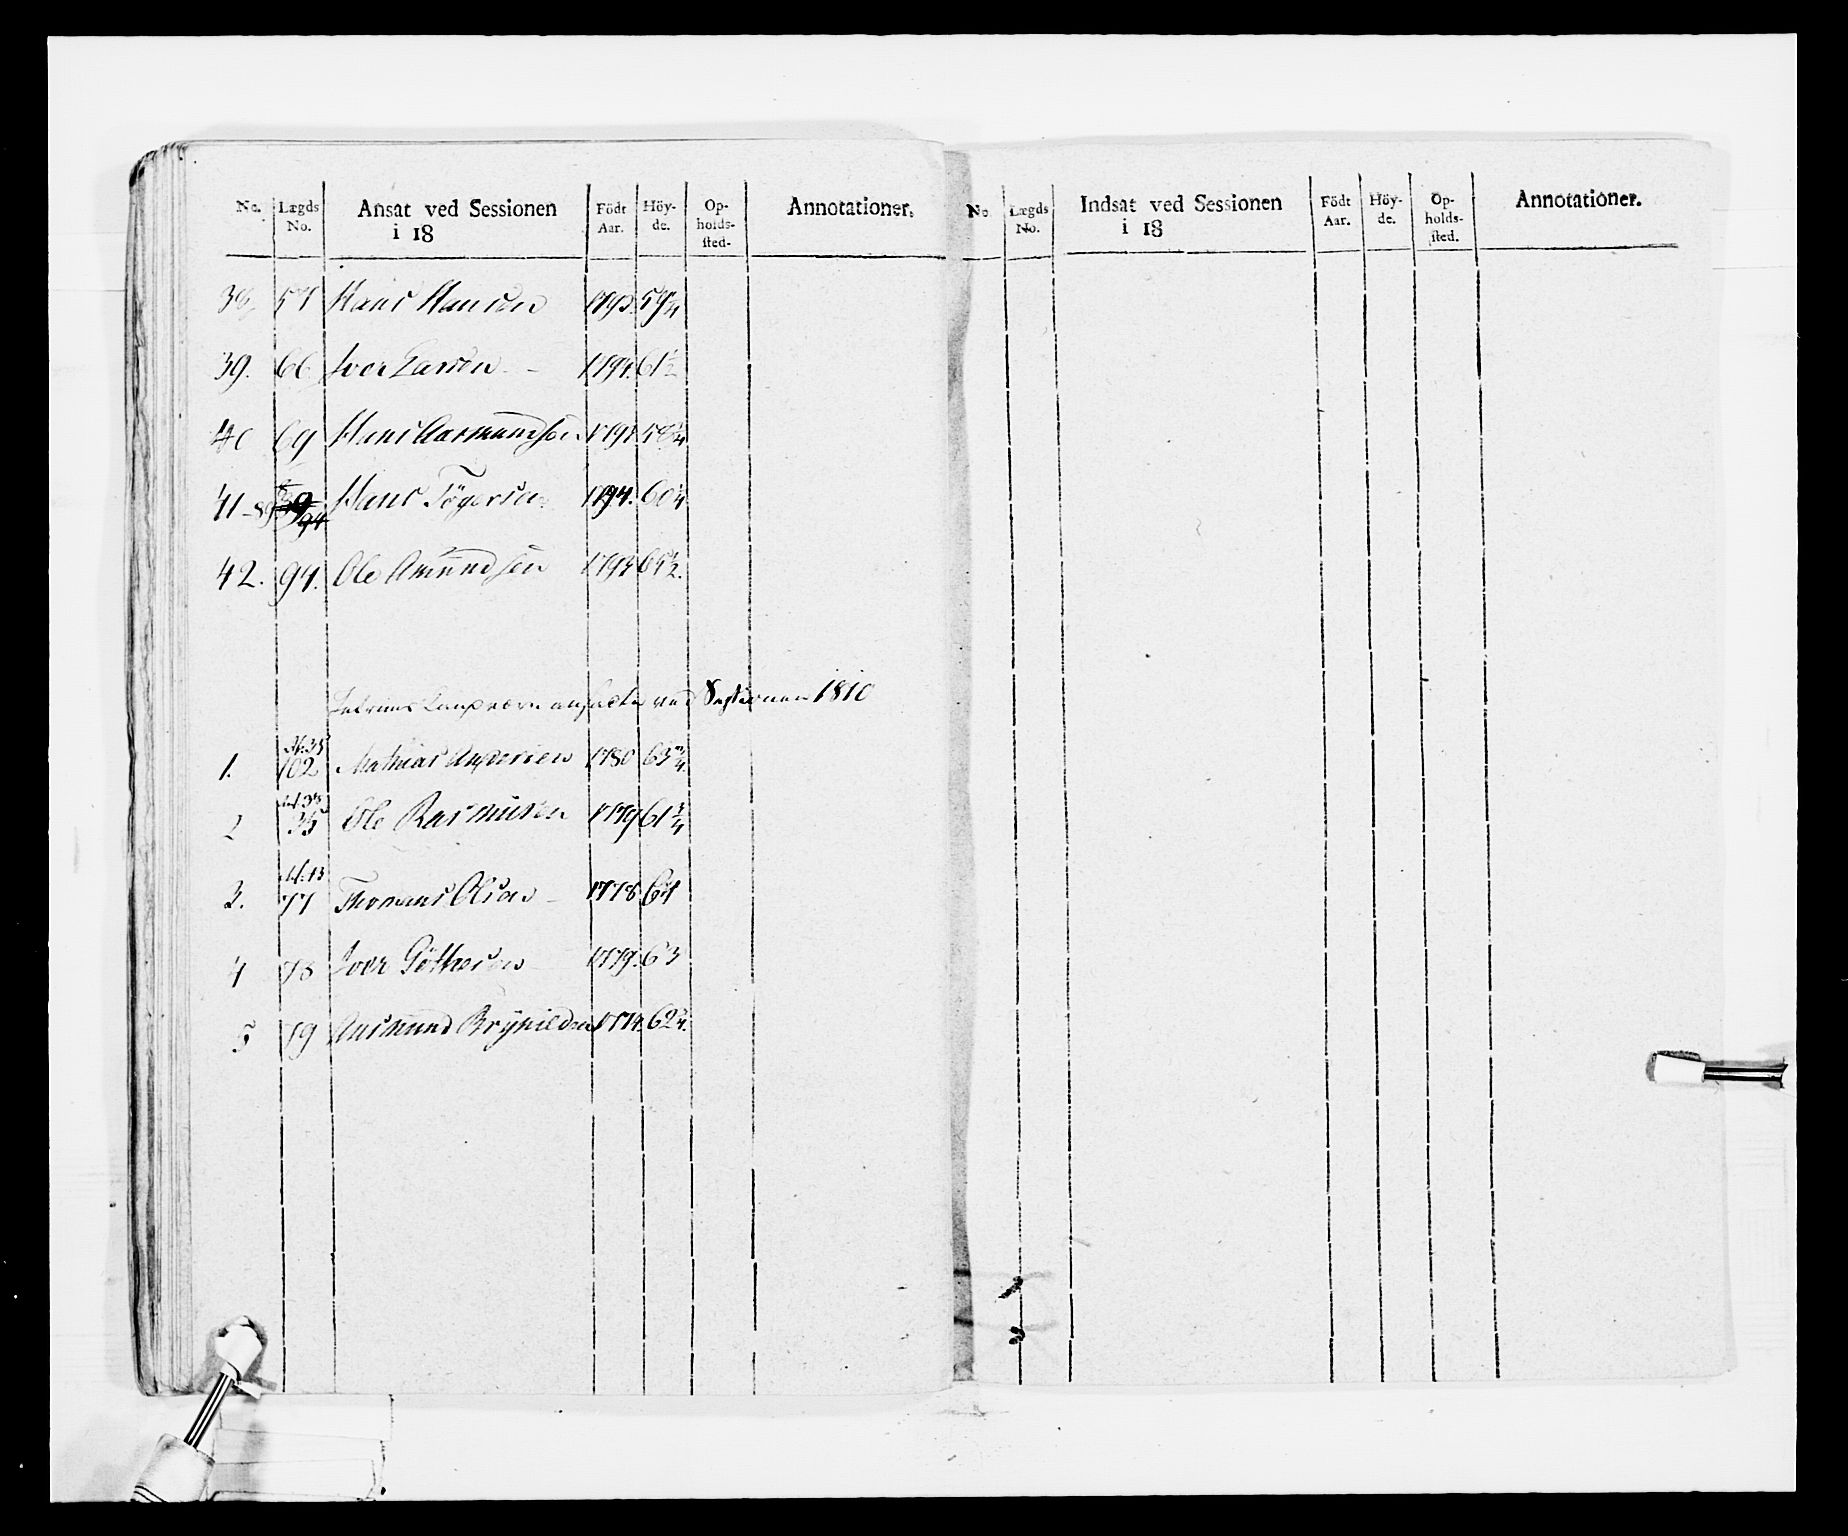 No. Lægds No. Ansat ved Sessionen i 18 Födt Aar. Höy- de. Op- holds- sted. Annotationer.
38. 57 Hans Hansen 1793. 59 1/4
39. 66 Iver Larsen 1794. 61 1/2
40 69 Hans Aasmundsen 179 58 3/4
41 89 Hans Tögersen 1794. 60 1/4
42. 94. Ole Amundsen 179 1/2.
Landværn ansatte ved Sessionen 1810
1. 102 Mathias Andersen 1780 63 3/4.
2 35 Ole Rasmusen 1779 61 3/4
3. 77 Thomas Olsen 1778 64
4 78 Iver 1779. 63
5 79 Aasmund Brynildsen 1774. 62 3/4.
No. Lægds No. Indsat ved Sessionen i 18 Födt Aar. Höy- de. Op- holds- sted. Annotationer.